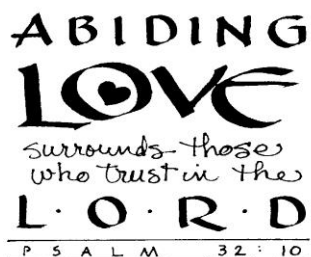 ABIDING
LOVE
surrounds those
who trust in the
L·O·R·D
PSALM 32:10